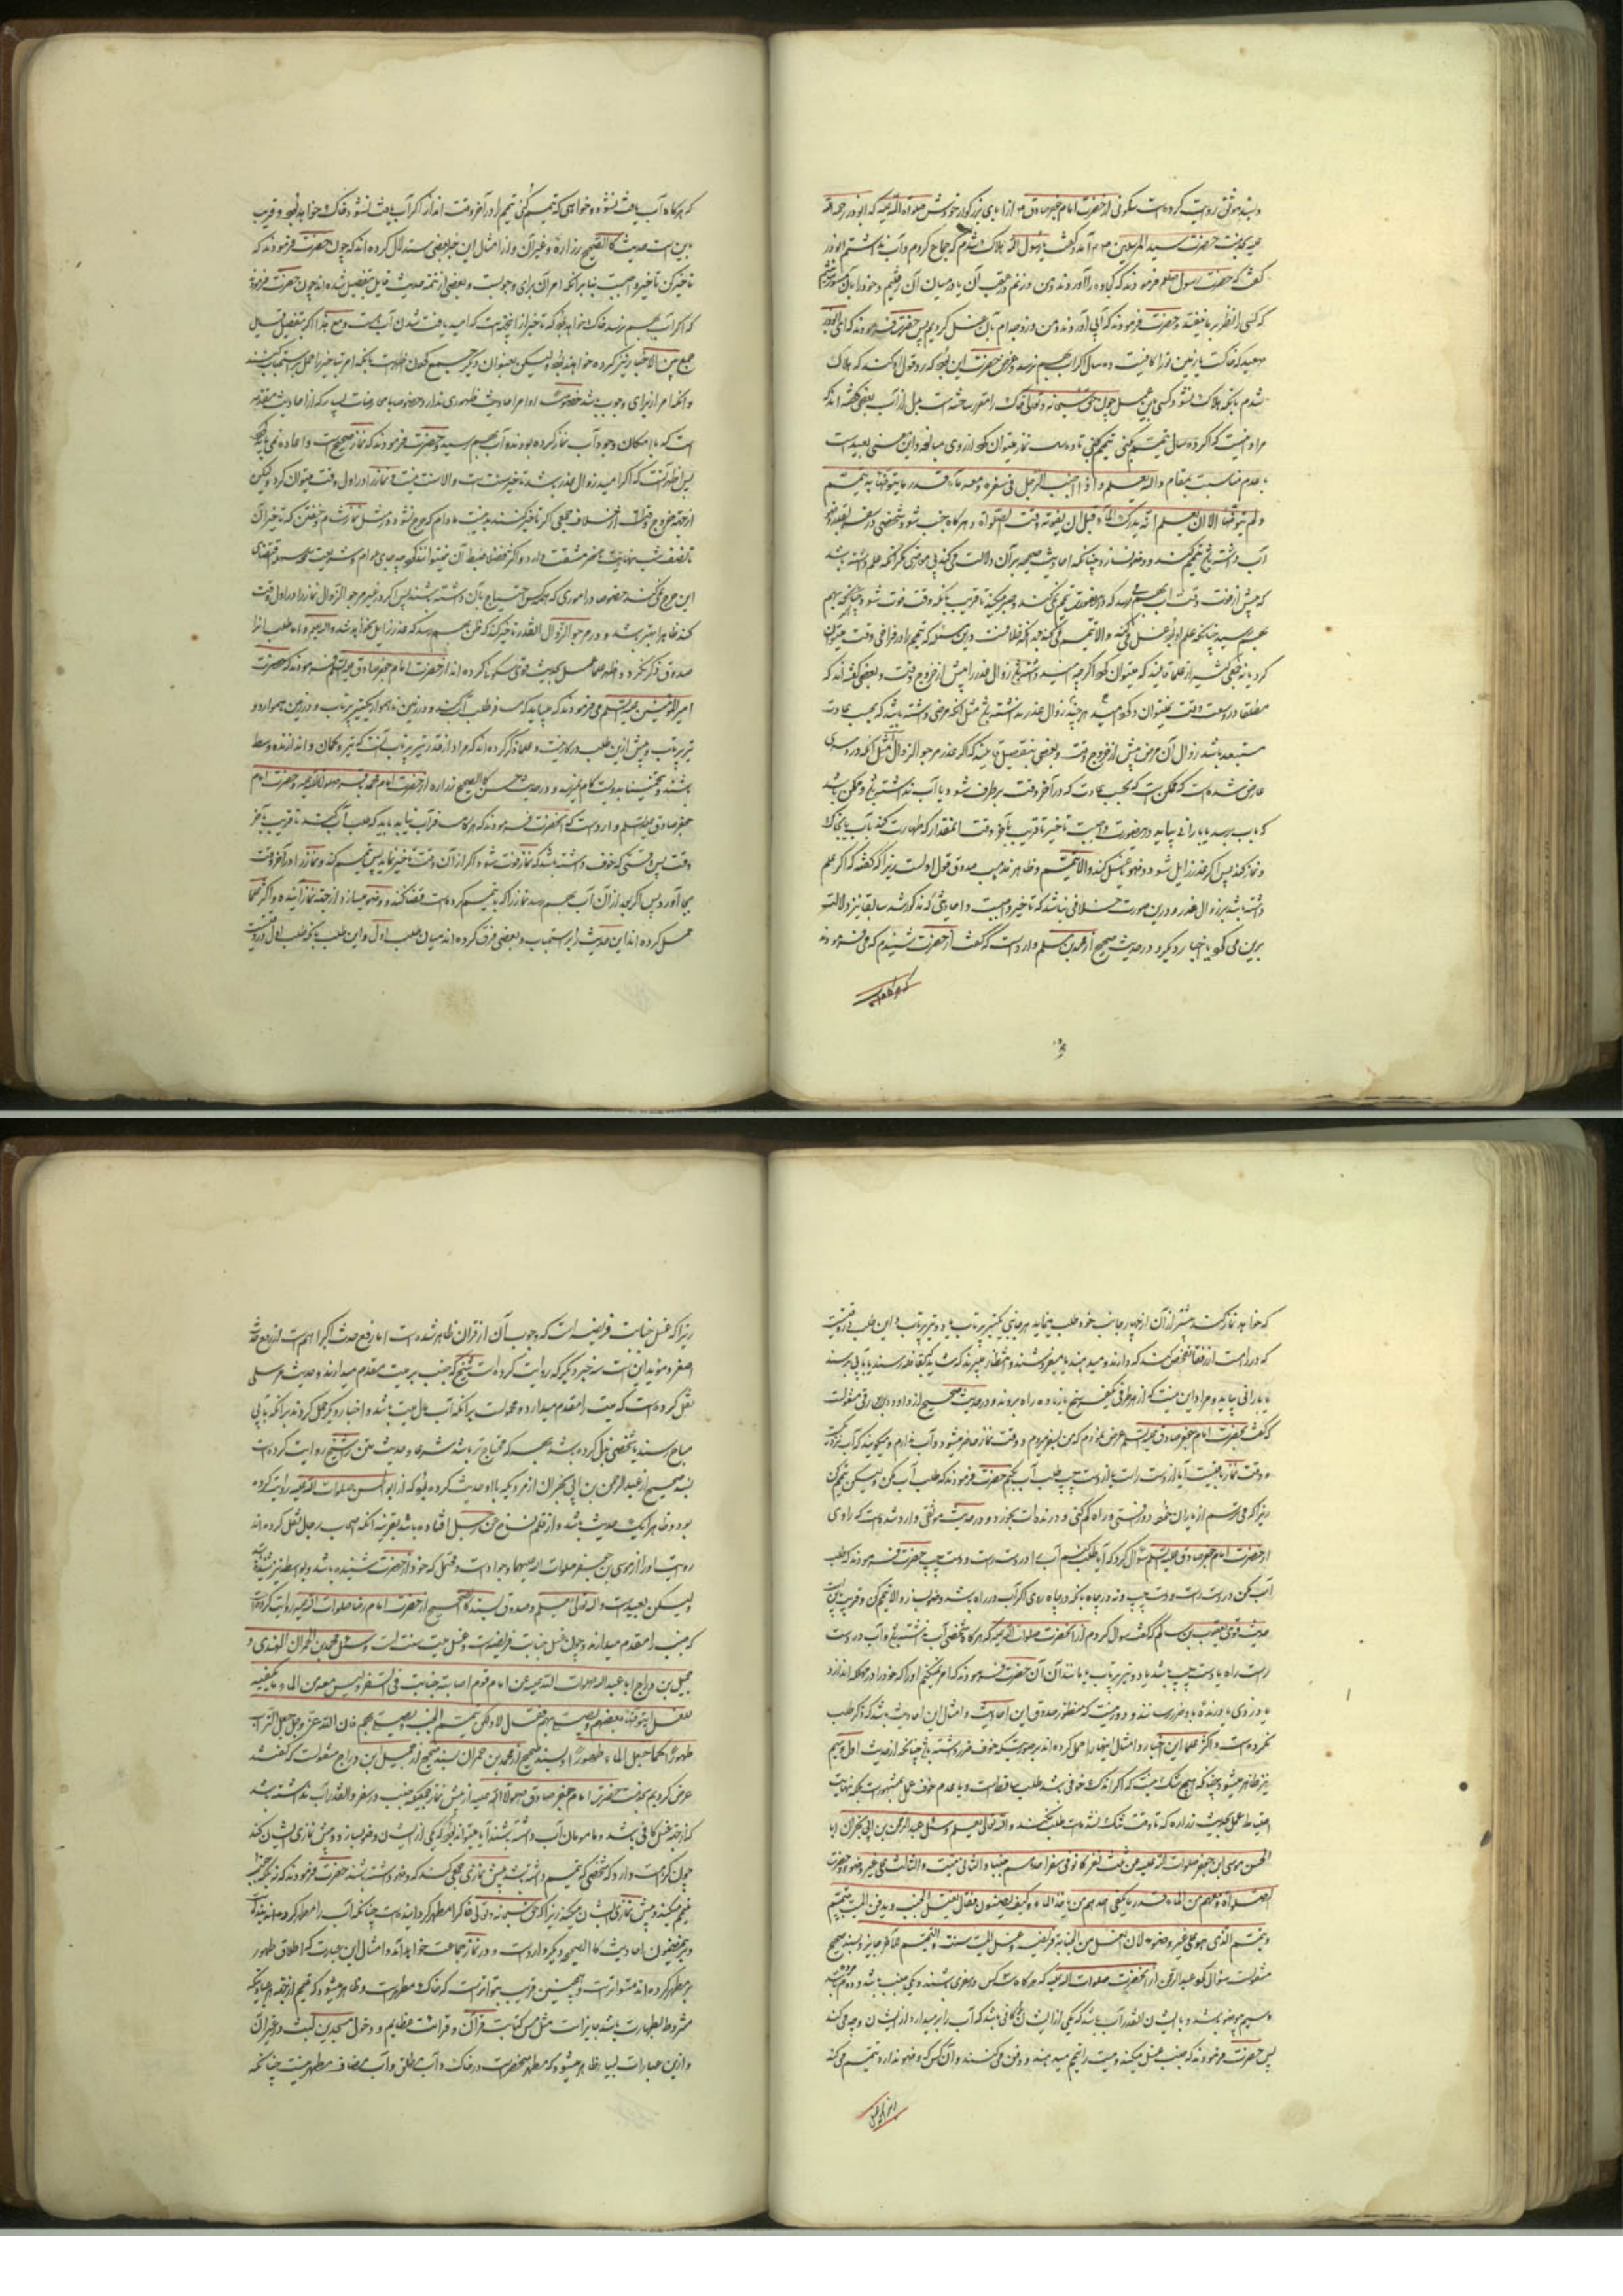 و بسند موثق روایت کرده است سکونی از حضرت امام جعفر صادق از آبای بزرگوار خودش صلوات الله علیه که ابوذر رحمة الله
علیه بخدمت حضرت سید المرسلین آمد و گفت یا رسول الله هلاک شدم که جماع کردم و آب نداشتم ابوذر
گفت که حضرت رسول صلعم فرمودند که کجاوه را آوردند و من و زنم در عقب آن یا در میان آن رفتیم و خود را بآن مستور
که کسی را نظر بر ما نیفتد و حضرت فرمودند که آبی آوردند و من و زوجه‌ام بآن غسل کردیم پس حضرت فرمودند که ای ابوذر
صعید که خاکست یا زمین ترا کافیست ده سال اگر آب بهم نرسد و غرض حضرت این بود که رد قول او کنند که هلاک
شدم بآنکه هلاک نشود کسی باین عمل چون حق سبحانه و تعالی خاک را مقرر ساخته است بدل از آب بعضی گفته اند که
مراد اینست که اگر ده سال تیمم کنی تیمم کنی تا ده سال نماز میتوان کرد از روی مبالغه و این معنی بعید است
با عدم مناسبت بمقام والله یعلم و اذا اجنب الرجل فی سفره و معه ماء قدر ما یتوضأ به تیمم
و لم یتوضأ الا ان یعلم انه یدرک الماء قبل ان یفوته وقت الصلوة و هرگاه جنب شود شخصی در سفر
آب داشته باشد تیمم کند و وضو نسازد چنانکه احادیث صحیحه بر آن دلالت می‌کند مگر آنکه علم داشته باشد
که پیش از فوت وقت آب بهم می‌رسد که درینصورت تیمم نمی‌کند و صبر میکند تا قریب بآنکه وقت فوت شود
علم او بود غسل می‌کند و الا تیمم می‌کند بدانکه خلافست درین مسئله که تیمم را در فراخی وقت میتوان
کرد یا نه جمعی کثیر از علما قایلند که میتوان کرد اگرچه امید داشته باشد زوال عذر را پیش از خروج وقت و بعضی گفته‌اند که
مطلقا در وسعت وقت نمیتوان کرد هرچند امید زوال عذر نداشته باشد مثل آنکه مرضی داشته باشد که بحسب عادت
مستبعد باشد زوال آن مرض پیش از خروج وقت و بعضی بتفصیل قایلند که اگر عذر مرجو الزوال مثل آنکه دردسری
عارض شده است که ممکن است که بحسب عادت که در آخر وقت برطرف شود یا آب نداشته باشد و ممکن باشد
که بآب برسد یا بارانی بیاید درینصورت واجبست تاخیر تا قریب بآخر وقت آنمقدار که طهارت کند بآب یا بخاک
و نماز کند پس اگر عذر زایل شود وضو یا غسل کند و الا تیمم و ظاهر مذهب صدوق قول اولست زیرا که گفته که اگر علم
داشته باشد بزوال عذر و درین صورت خلافی نباشد که تاخیر واجبست و احادیثی که مذکور شد سابقا نیز دلالت
برین می‌کند با اخبار دیگر و در حدیث صحیح از محمد بن مسلم وارد است که گفت از حضرت شنیدم که می‌فرمودند
که هرگاه آب
که هرگاه آب یافت نشود و خواهی که تیمم کنی تیمم را در آخر وقت انداز اگر آب یافت نشود خاک خواهد بود و قریب
باین است حدیث کالصحیح زراره و غیر آن و از امثال این خبر بعضی استدلال کرده اند که چون حضرت فرمودند که
تاخیر کن تاخیر واجبست بنا بر آنکه امر آن برای وجوبست و بعضی از تتمه حدیث قایل بتفصیل شده اند چون حضرت فرمود
که اگر آب بهم نرسد خاک خواهد بود که تاخیر از آنجهت است که امید یافت شدن آب هست و مع هذا اگر بتفصیل قایل
جمع بین الاخبار نیز کرده خواهند بود ولیکن بعنوان دیگر جمع ممکن است بآنکه امر بتاخیر را حمل بر استحباب کنند
و آنکه امر از برای وجوب باشد خصوصا اوامر احادیث ظهوری ندارد خصوصا با معارضات بسیار که از احادیث متقدمه
است که با امکان وجود آب نماز کرده بودند و آب بهم رسید و حضرت فرمودند که نماز صحیح است و اعاده نمی‌باید کرد
پس اظهر آنست که اگر امید زوال عذر باشد تاخیر سنت است و الا سنت نیست و نماز را در اول وقت میتوان کرد ولیکن
از جهة خروج از خلاف جمعی اگر تاخیر کنند بد نیست مادام که حرج نشود و مثل نماز شام و خفتن که تاخیر آن
تا نصف شب نهایت عسر و مشقت دارد و اکثر فضلا ضبط آن نمیتوانند کرد چه جای عوام و شریعت سمحه سهله اقتضای
این حرج نمی‌کند خصوصا در اموری که همه کس احتیاج بآن داشته باشند پس اگر در غیر مرجو الزوال نماز را در اول وقت
کند ظاهرا بهتر باشد و در مرجو الزوال آنقدر تاخیر کند که ظن بهم رسد که عذر زایل نخواهد شد والله یعلم و اما طلب را
صدوق ذکر نکرد و اظهر علما عمل بحدیث قوی سکونی کرده اند از حضرت امام جعفر صادق علیه السلم فرمودند که حضرت
امیر المؤمنین علیه السلم می‌فرمودند که میباید که مسافر طلب آب کند و در زمین ناهموار یکتیر پرتاب و در زمین هموار دو
تیر پرتاب و پیش ازین طلب در کار نیست و علما ذکر کرده اند که مراد از قدر تیر پرتاب آنست که تیر و کمان و اندازنده وسط
باشند و تخمینا بدویست گام میرسد و در حدیث حسن کالصحیح زراره از حضرت امام محمد باقر صلوات الله علیه و حضرت امام
جعفر صادق علیه السلم وارد است که آنحضرت فرمودند که هرگاه مسافر آب نیابد باید که طلب آب کند تا قریب بآخر
وقت پس وقتی که خوف داشته باشد که نماز فوت شود اگر از آن وقت تاخیر نماید پس تیمم کند و نماز را در آخر وقت
بجا آورد پس اگر بعد از آن آب بهم رسد نماز را که با تیمم کرده است قضا نکند و وضو میسازد از جهة نماز آینده و اکثر علما
حمل کرده اند این حدیث را بر استحباب و بعضی فرق کرده اند میان طلب اول و این طلب بآنکه طلب اول در وقتیست
که خواهد نماز کند پیشتر از آن از چهار جانب خود طلب مینماید هر جانبی یکتیر پرتاب یا دو تیر پرتاب و این طلب در وقتیست
که در راه است از رفقا تفحص کند که دارند و میدهند یا میفروشند و انتظار میبرند که شاید بقافله رسند یا بآبی برسند
یا بارانی بیاید و مراد این نیست که از هر طرفی یکفرسخ یا زیاده راه بروند و در حدیث صحیح از داود رقی منقولست
که گفت بحضرت امام جعفر صادق علیه السلم عرض نمودم که من بسفر میروم و وقت نماز حاضر میشود و آب ندارم و میگویند که آب نزدیکست
و وقت نماز باقیست آیا از دست راست یا از دست چپ طلب آب بکنم حضرت فرمودند که طلب آب مکن ولیکن تیمم کن
زیرا که می‌ترسم از یاران خود دور افتی و راه گم کنی و درنده ات بخورد و در حدیث موثقی وارد شده است که راوی
از حضرت امام جعفر صادق علیه السلم سؤال کرد که آیا طلب کنیم آب را در دست راست و دست چپ حضرت فرمودند که طلب
آب مکن در دست راست و دست چپ و نه در چاه بآنکه در چاه روی اگر آب در راه باشد وضو بساز و الا تیمم کن و قریب باین
حدیث قوی یعقوب بن سالم که گفت سؤال کردم از آنحضرت صلوات الله علیه که هرگاه شخصی آب نداشته باشد و آب در دست
راست راه یا دست چپ باشد یا دو تیر پرتاب یا مانند آن آن حضرت فرمودند که امر نمیکنم او را که خود را در مهلکه اندازد
یا دزدی یا درنده باو ضرر رساند و دور نیست که منظور صدوق این احادیث و امثال این احادیث باشد که ذکر طلب
نکرده است و اکثر علما این اخبار و امثال اینها را حمل کرده اند بر صورتیکه خوف ضرر داشته باشد چنانکه از حدیث اول
نیز ظاهر میشود چنانکه هیچ شک نیست که اگر اندک خوفی باشد طلب ساقط است و با عدم خوف عمل بمشهورست بلکه نهایت
احتیاط عمل بحدیث زراره که تا وقت تنگ نشده است طلب بکنند و الله تعالی یعلم و سئل عبد الرحمن بن ابی نجران ابا
الحسن موسی ابن جعفر صلوات الله علیه عن ثلثة نفر کانوا فی سفر احدهم جنب و الثانی میت و الثالث علی غیر وضوء و حضرت
الصلوة و معهم من الماء قدر ما یکفی احدهم من یأخذ الماء و کیف یصنعون فقال یغتسل الجنب و یدفن المیت بتیمم
و یتیمم الذی هو علی غیر وضوء لان الغسل من الجنابة فریضة و غسل المیت سنت و التیمم للآخر جایز و بسند صحیح
منقولست سؤال کرد عبد الرحمن از آنحضرت صلوات الله علیه که هرگاه سه کس در سفری باشند و یکی جنب باشد و دوم مرده باشد
و سیم بی وضو باشد و با ایشان آنقدر آب باشد که یکی از ایشان را کافی باشد که آب را بر میدارد از ایشان و چه می‌کنند
پس حضرت فرمودند که جنب غسل میکند و میت را تیمم میدهند و دفن می‌کنند و آن کس که وضو ندارد تیمم می‌کند
زیرا که غسل
زیرا که غسل جنابت فریضه است که وجوب آن از قرآن ظاهر شده است اما رفع حدث اکبر اهم است از رفع حدث
اصغر و مؤید این است سه خبر دیگر که روایت کرده است شیخ که جنب بر میت مقدم میدارند و حدیث مرسلی
نقل کرده است که میت را مقدم میدارد و محمولست بر آنکه آب مال میت باشد و اخبار دیگر حمل کردند بر آنکه بآبی
مباح رسند یا شخصی بذل کرده باشد بهر که محتاج تر باشد شرعا و حدیث متن را شیخ روایت کرده است
بسند صحیح از عبد الرحمن بن ابی نجران از مردیکه باو حدیث کرده بود که از ابو الحسن صلوات الله علیه روایت کرده
بود و ظاهرا یک حدیث باشد و از قلم نساخ عن رجل افتاده باشد بقرینه آنکه اصحاب رجال نقل کرده اند
روایت او را از موسی بن جعفر صلوات الله علیهما و محتمل که خود از حضرت شنیده باشد و بواسطه نیز شنیده
ولیکن بعید است والله تعالی یعلم و صدوق بسند کالصحیح از حضرت امام رضا صلوات الله علیه روایت کرده است
که جنب را مقدم میدارند و چون غسل جنابت فریضه است و غسل میت سنت است و سئل محمد بن حمران النهدی و
جمیل بن دراج ابا عبد الله صلوات الله علیه عن امام قوم اصابته جنابت فی السفر و لیس معه من الماء ما یکفیه
للغسل ایتوضأ بعضهم و یصلی بهم فقال لا ولکن یتیمم الجنب و یصلی بهم فان الله عز و جل جعل التراب
طهورا کما جعل الماء طهورا و بسند صحیح از محمد بن حمران و بسند صحیح از جمیل بن دراج منقولست که گفتند
عرض کردیم بخدمت حضرت امام جعفر صادق صلوات الله علیه از پیش نماز قومیکه جنب در سفر و آنقدر آب نداشته باشد
که از جهة غسل کافی باشد و مامومان آب داشته باشند آیا میتواند بود که یکی از ایشان وضو بسازد و پیش نمازی ایشان کند
چون مکروه است که شخصی که تیمم داشته باشد پیش نمازی جمعی کند که وضو داشته باشند حضرت فرمودند که نه بلکه جنب
تیمم میکند و پیش نمازی ایشان میکند زیرا که حق سبحانه و تعالی خاک را مطهر گردانیده است چنانکه آب را مطهر گردانیده
و بدین مضمون احادیث کالصحیح دیگر وارد است و در نماز جماعت خواهد آمد و امثال این عبارت که اطلاق طهور
بر مطهر کرده اند متواتر است و همچنین قریب بتواتر است که خاک مطهر است و ظاهر میشود که تیمم از جهة هر عبادتیکه
مشروط بطهارت باشد جایز است مثل مس کتابت قرآن و قرائت عظایم و دخول مسجدین و لبث در غیر آن
و ازین عبارات بسیار ظاهر میشود که مطهر منحصر است در خاک و آب مطلق و آب مضاف مطهر نیست چنانکه